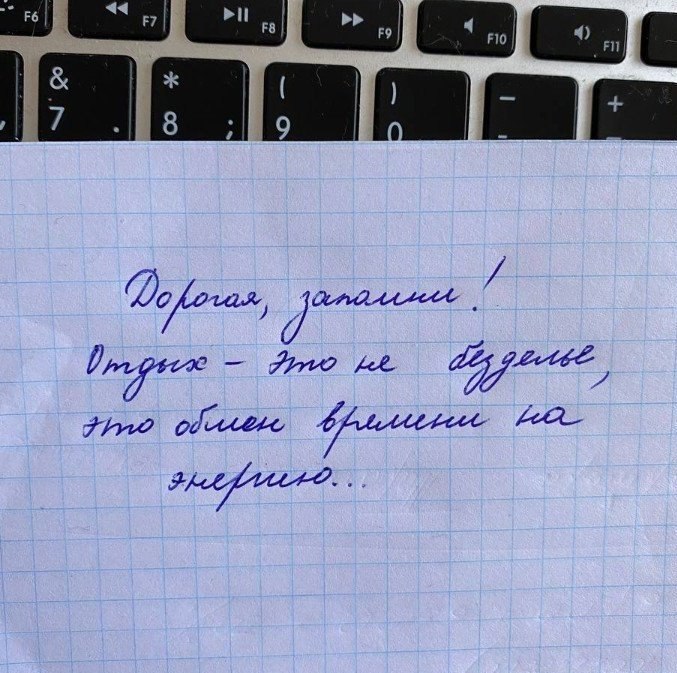 F6 F7 F8 F9 F10 F11
& * ( ) – +
7 . 8 ; 9 0 -
Дорогая, запомни!
Отдых – это не безделье,
это обмен времени на
энергию...